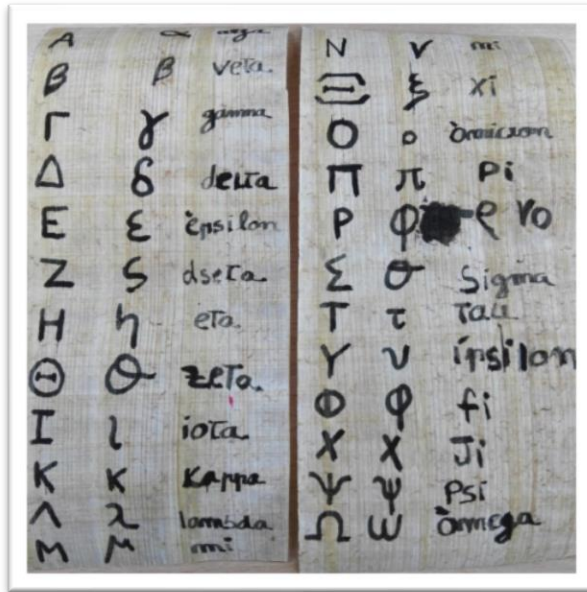 Α α
Β β veta
Γ γ gamma
Δ δ delta
Ε ε èpsilon
Ζ ς dseta
Η η eta
Θ θ zeta
Ι ι iota
Κ κ kappa
Λ λ lambda
Μ μ mi
Ν ν ni
Ξ ξ xi
Ο ο òmicron
Π π pi
Ρ φ ρ ro
Σ σ sigma
Τ τ tau
Υ υ ípsilon
Φ φ fi
Χ χ ji
Ψ ψ psi
Ω ω òmega